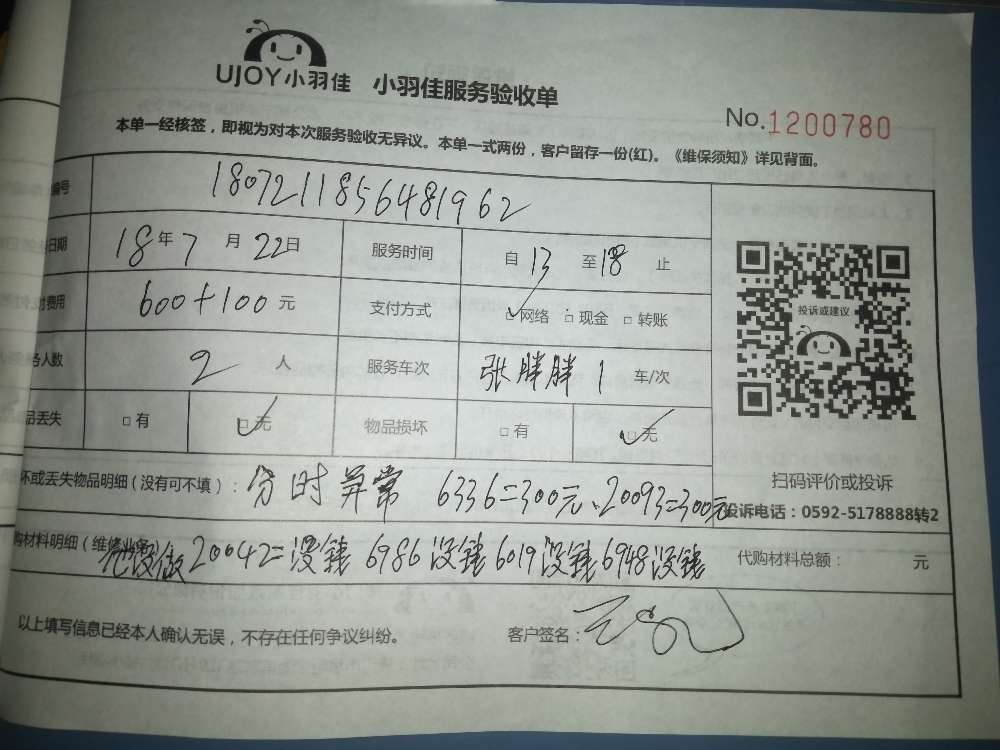 UJOY小羽佳 小羽佳服务验收单
No.1200780
本单一经核签，即视为对本次服务验收无异议。本单一式两份，客户留存一份(红)。《维保须知》详见背面。
编号 1807211856481962
日期 18年7月22日 服务时间 自13至18止
费用 600+100元 支付方式 ☑网络 □现金 □转账
人数 2人 服务车次 张胖胖1车/次
品丢失 □有 ☑无 物品损坏 □有 ☑无
投诉或建议
扫码评价或投诉
投诉电话：0592-5178888转2
坏或丢失物品明细（没有可不填）：分时异常 6336=300元、20093=300元
购材料明细（维修业务） 没做20042=没錢 6986没錢 6019没錢 6948没錢 代购材料总额： 元
以上填写信息已经本人确认无误，不存在任何争议纠纷。 客户签名：